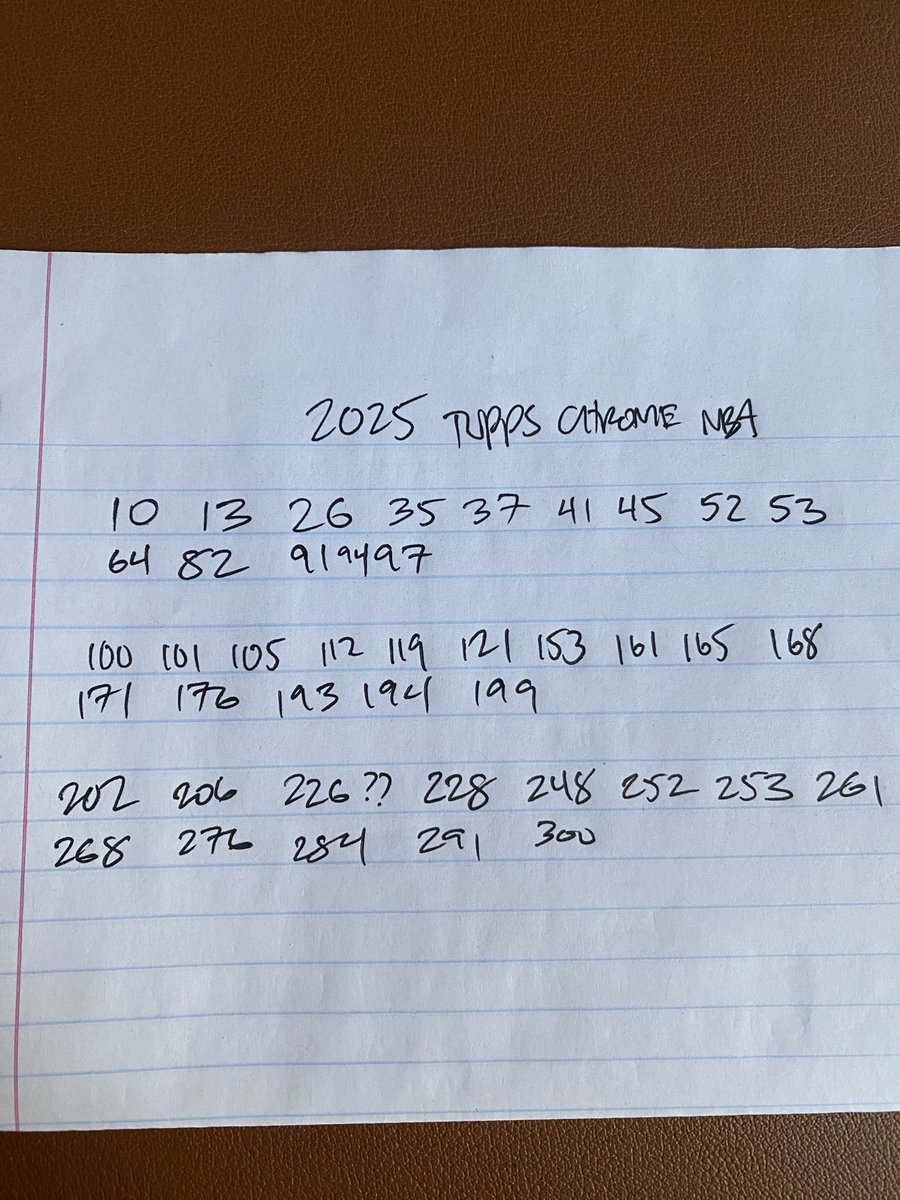 2025 TOPPS CHROME NBA
10 13 26 35 37 41 45 52 53
64 82 91 94 97
100 101 105 112 119 121 153 161 165 168
171 176 193 194 199
202 206 226?? 228 248 252 253 261
268 276 284 291 300